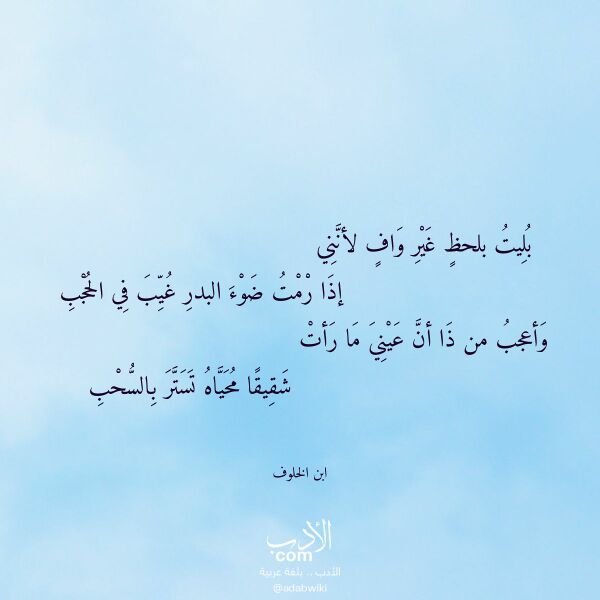 بُلِيتُ بلحظٍ غَيْرِ وَافٍ لأنَّنِي
إذَا رْمْتُ ضَوْءَ البدرِ غُيِّبَ فِي الحُجْبِ
وَأعجبُ من ذَا أنَّ عَيْنِيَ مَا رَأتْ
شَقِيقًا مُحَيَّاهُ تَسَتَّرَ بِالسُّحْبِ
ابن الخلوف
الأدب
com
الأدب .. بلغة عربية
@adabwiki